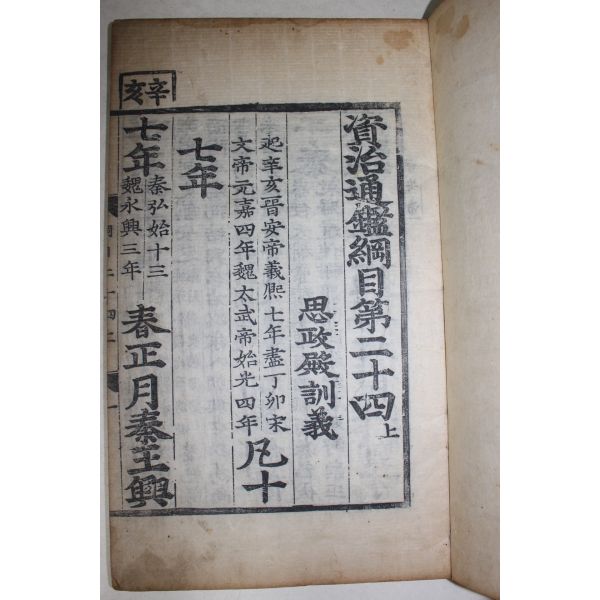 資治通鑑綱目第二十四上
思政殿訓義
起辛亥晉安帝義熙七年盡丁卯宋
文帝元嘉四年魏太武帝始光四年
凡十
七年
辛亥
七年
秦弘始十三
魏永興三年
春正月秦王興